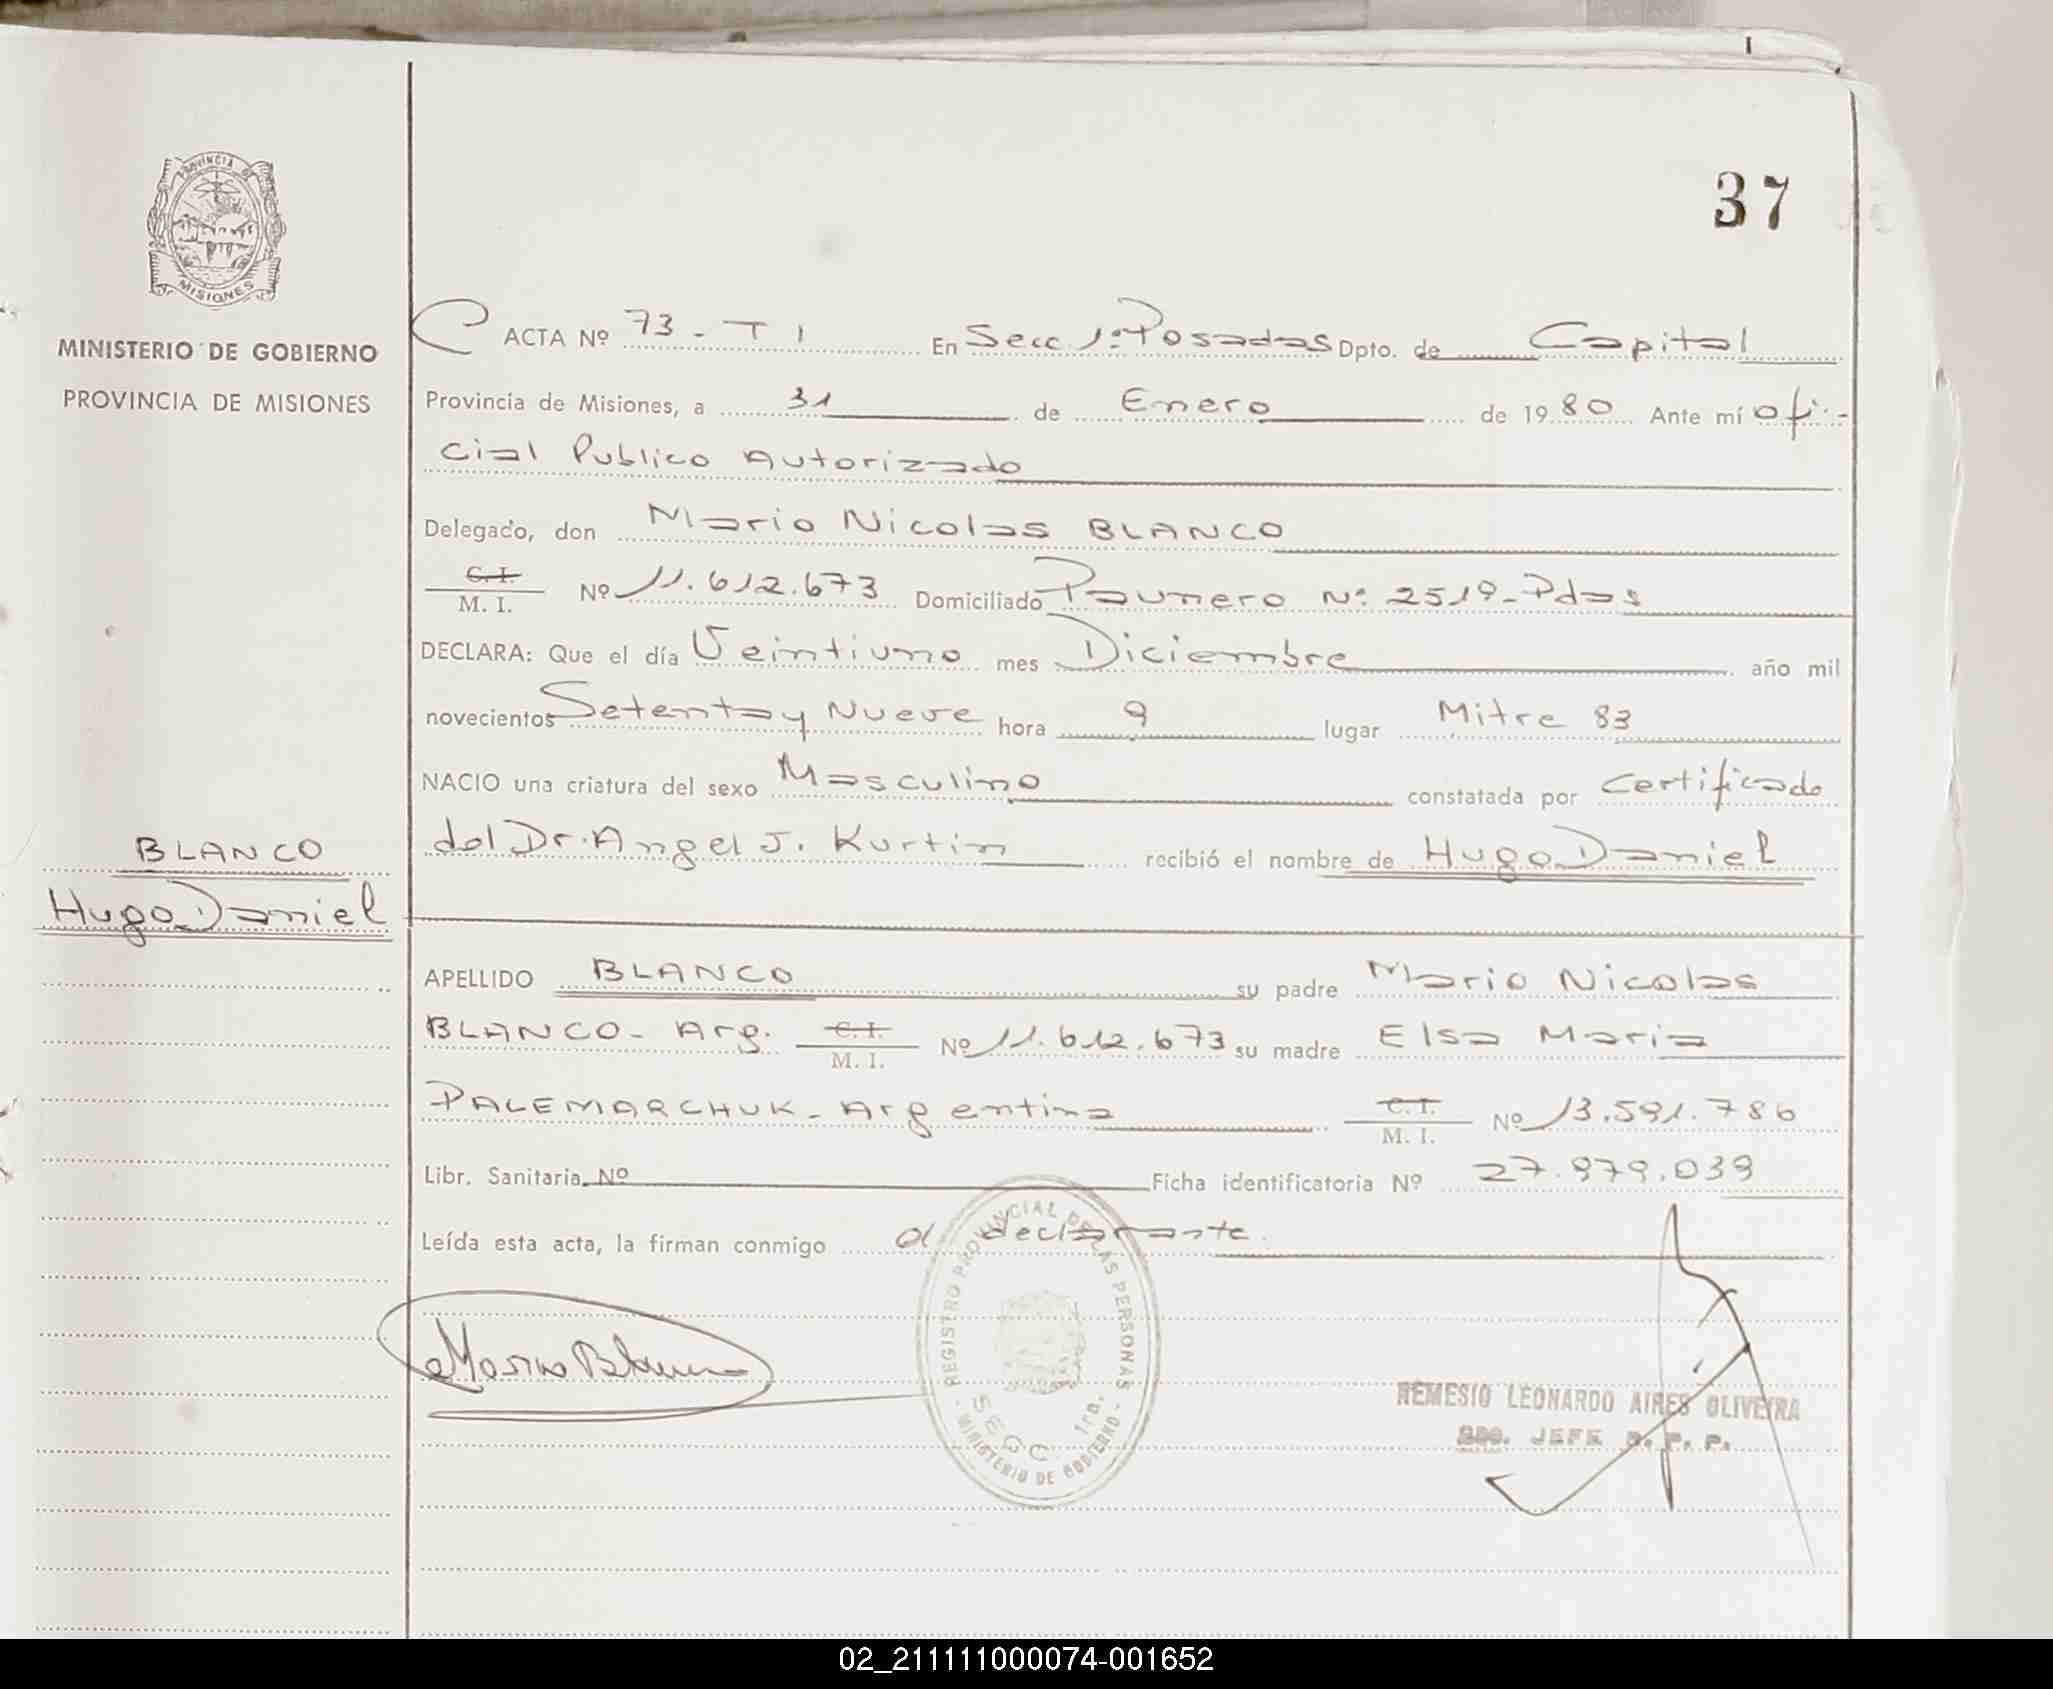 37
PROVINCIA DE
MISIONES
MINISTERIO DE GOBIERNO
PROVINCIA DE MISIONES
ACTA Nº 73 - T I En Secc 1º Posadas Dpto. de Capital
Provincia de Misiones, a 31 de Enero de 1980 Ante mí ofi-
cial Publico Autorizado
Delegado, don Mario Nicolas BLANCO
C. I. / M. I. Nº 11.612.673 Domiciliado Paunero Nº 2519-Pdas
DECLARA: Que el día Veintiuno mes Diciembre año mil
novecientos Setenta y Nueve hora 9 lugar Mitre 83
NACIO una criatura del sexo Masculino constatada por Certificado
del Dr. Angel J. Kurtin recibió el nombre de Hugo Daniel
BLANCO
Hugo Daniel
APELLIDO BLANCO su padre Mario Nicolas
BLANCO - Arg. C. I. / M. I. Nº 11.612.673 su madre Elsa Maria
PALEMARCHUK - Argentina C. I. / M. I. Nº 13.591.786
Libr. Sanitaria Nº Ficha identificatoria Nº 27.979.039
Leída esta acta, la firman conmigo el declarante.
Mario Blanco
REGISTRO PROVINCIAL DE LAS PERSONAS
SECC. 1ra.
MINISTERIO DE GOBIERNO
REMESIO LEONARDO AIRES OLIVEIRA
JEFE R. P. P.
02_211111000074-001652